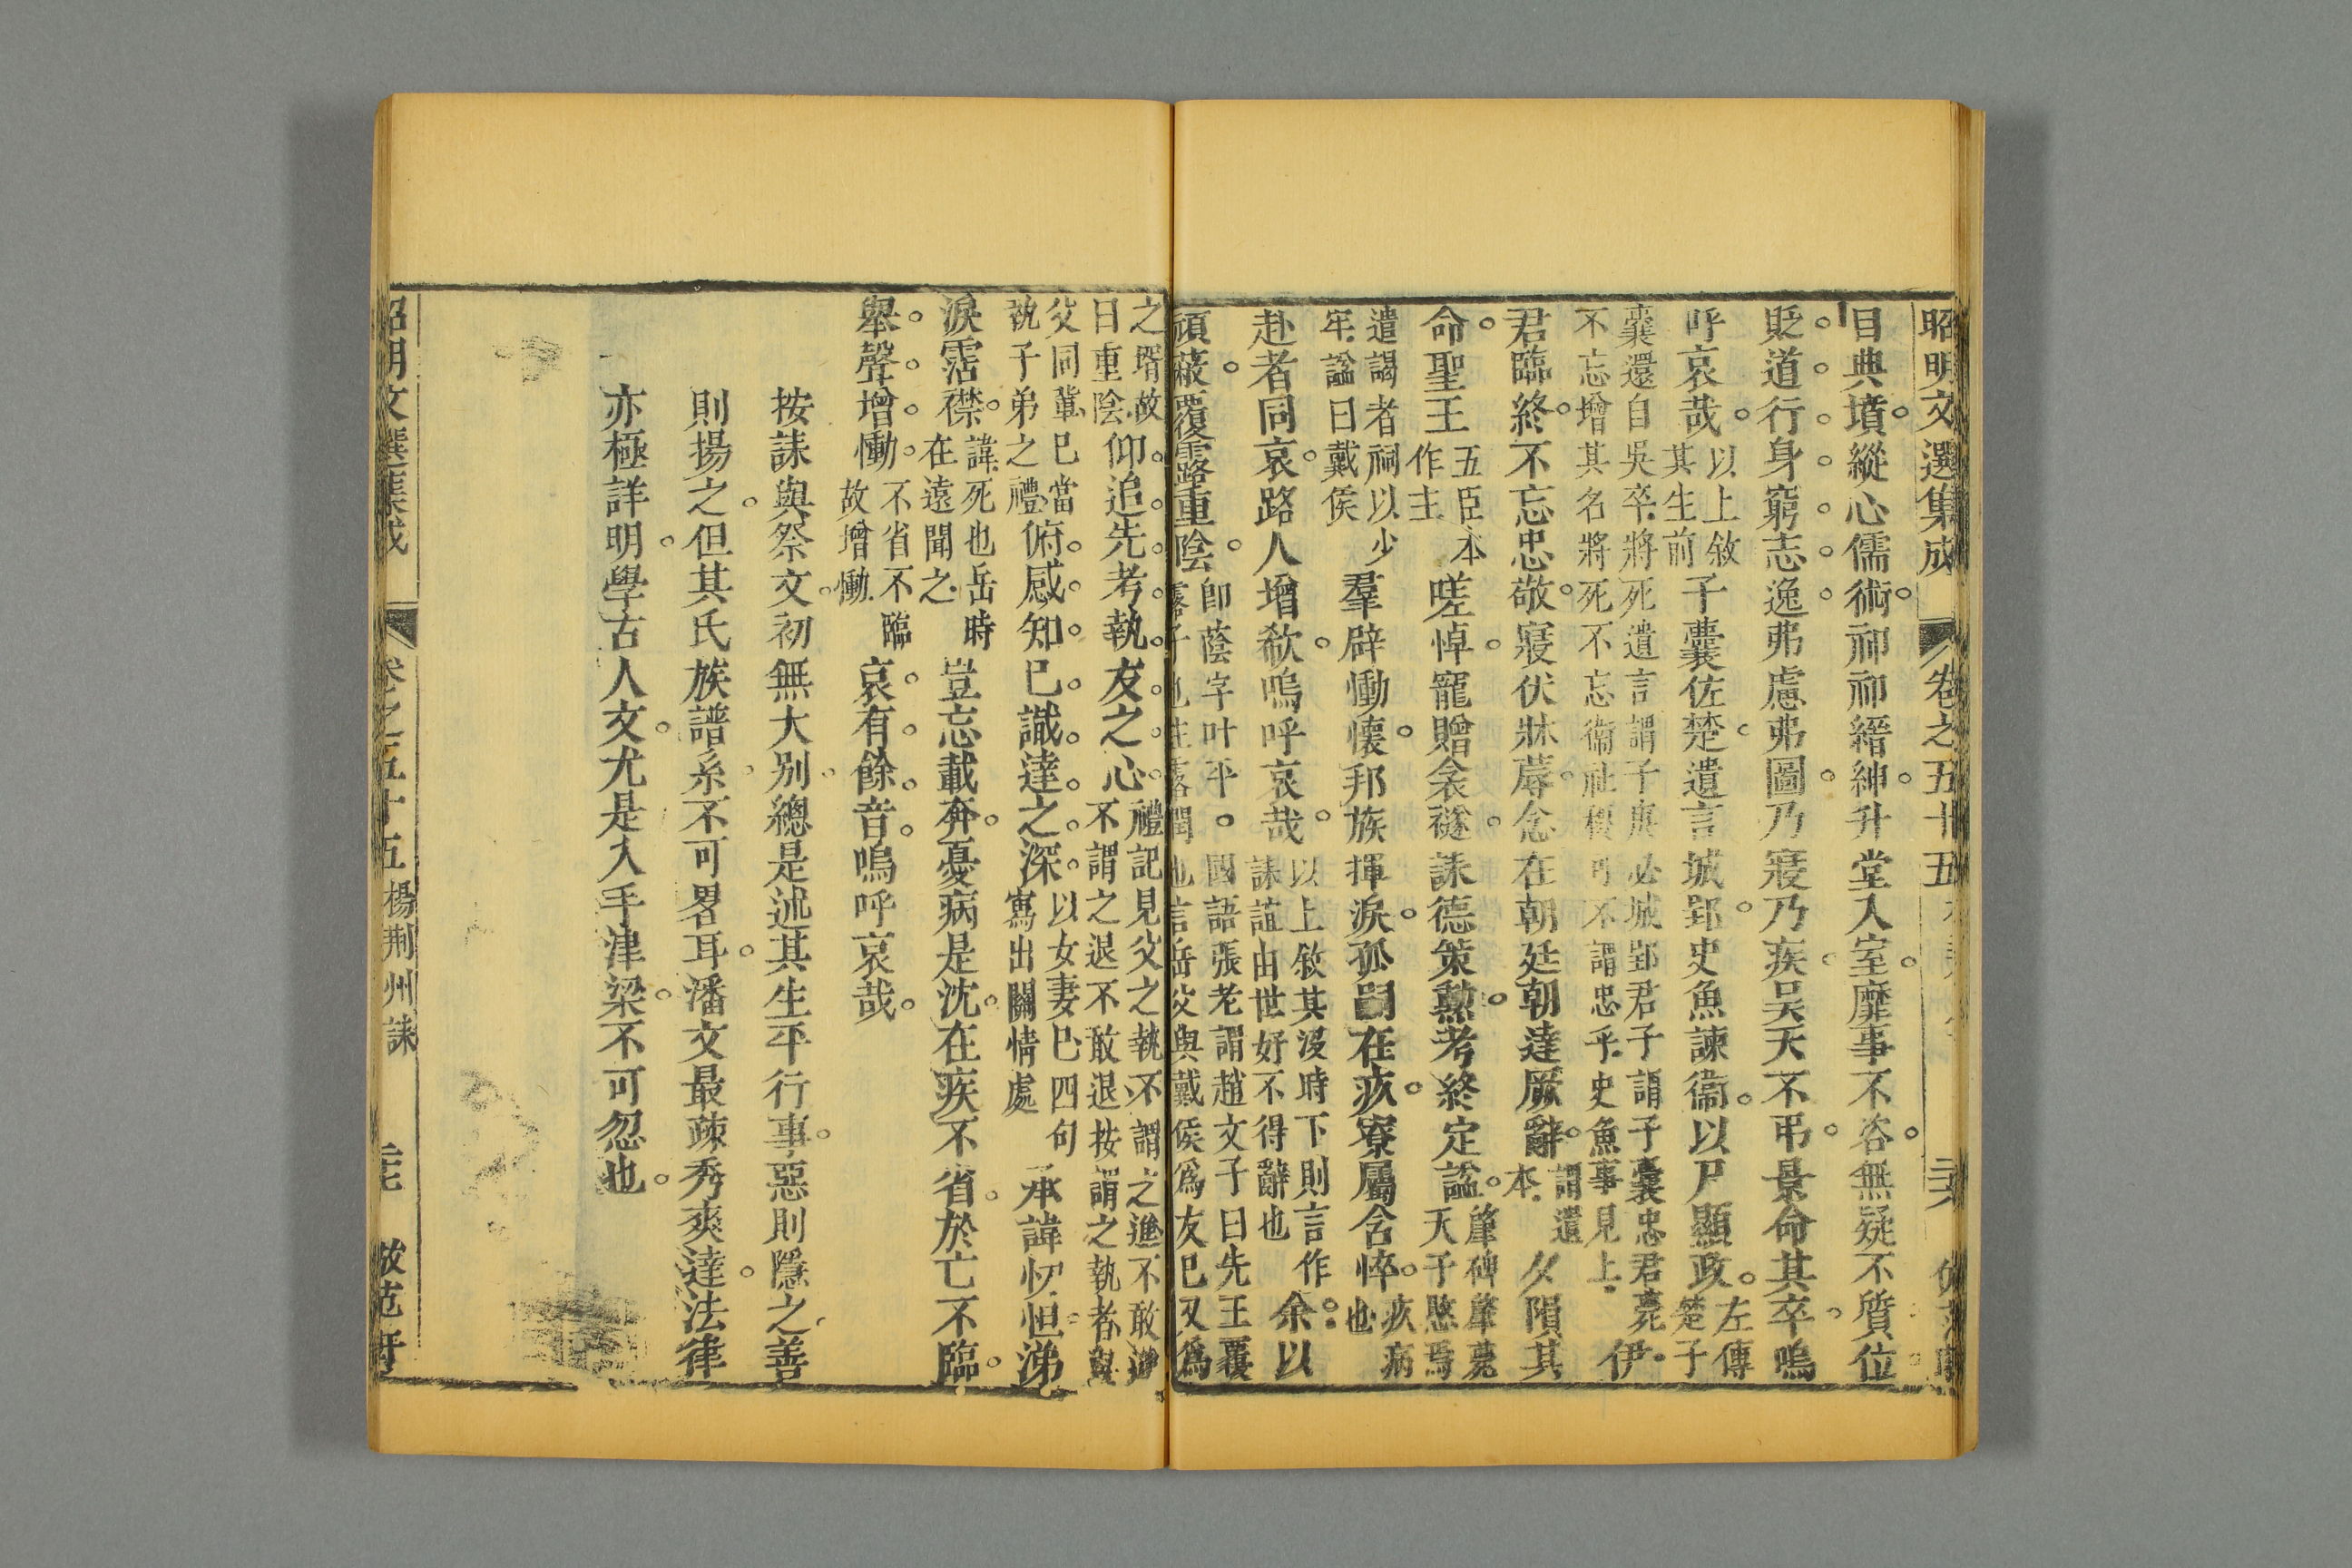 昭明文選集成 卷之五十五 二六
目典墳。縱心儒術。祁祁搢紳。升堂入室。靡事不咨。無疑不質。位
貶。道。行。身。窮。志。逸。弗慮弗圖。乃寢乃疾。昊天不弔。景命其卒。嗚
呼哀哉。以上敘其生前子囊佐楚。遺言城郢。史魚諫衞。以尸顯政。左傳楚子
囊還自吳卒將死遺言謂子庚必城郢君子謂子囊忠君薨
不忘增其名將死不忘衞社稷可不謂忠乎史魚事見上。伊
君臨終。不忘忠敬。寢伏牀蓐。念在朝廷。朝達厥辭。謂遺本夕隕其
命。聖王五臣本作主嗟悼。寵贈衾襚。誄德策勲。考終定諡。肇碑肇薨天子愍焉
遣謁者祠以少牢諡曰戴侯羣辟慟懷。邦族揮淚。孤嗣在疚。寮屬含悴。疚病也
赴者同哀。路人增欷。嗚呼哀哉。以上敘其沒時下則言作誄誼由世好不得辭也余。以
頑蔽。覆露重陰。卽蔭字叶平。國語張老謂趙文子曰先王覆
露子也注露潤也言岳父與戴侯爲友已又爲
之壻故曰重陰仰。追。先。考。執。友。之。心。禮記見父之執不謂之進不敢進
不謂之退不敢退按謂之執者與
父同輩已當執子弟之禮俯。感。知。已。識。達。之。深。以女妻已四句寫出關情處承諱忉怛。涕
淚霑襟。諱死也岳時在遠聞之豈忘載奔。憂病是沈。在疾不省。於亡不臨。
舉。聲。增。慟。不省不臨故增慟哀。有。餘。音。嗚呼哀哉。
按誄與祭文。初無大別。總是述其生平行事。惡則隱之。善
則揚之。但其氏族譜系。不可畧耳。潘文最疎秀爽達。法律
亦極詳明。學古人文。尤是入手津梁。不可忽也。
昭明文選集成 卷之五十五 楊荆州誄 二七